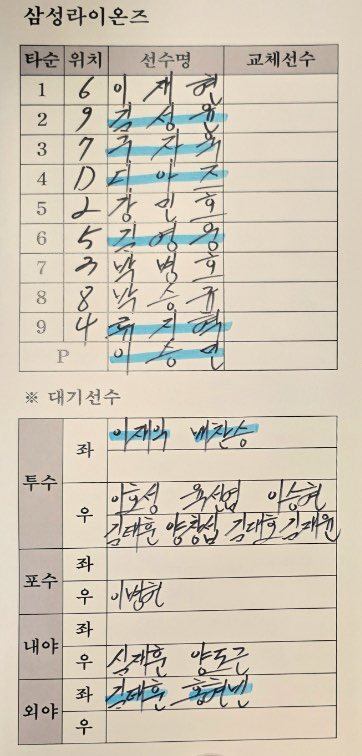 삼성라이온즈
타순 위치 선수명 교체선수
1 6 이재현
2 9 김성윤
3 7 구자욱
4 D 디아즈
5 2 강민호
6 5 김영웅
7 3 박병호
8 8 박승규
9 4 류지혁
P 이승현
※ 대기선수
투수 좌 이재익 배찬승
우 이호성 육선엽 이승현
김태훈 양창섭 김대호 김재윤
포수 좌
우 이병헌
내야 좌
우 심재훈 양도근
외야 좌 김태훈 홍현빈
우